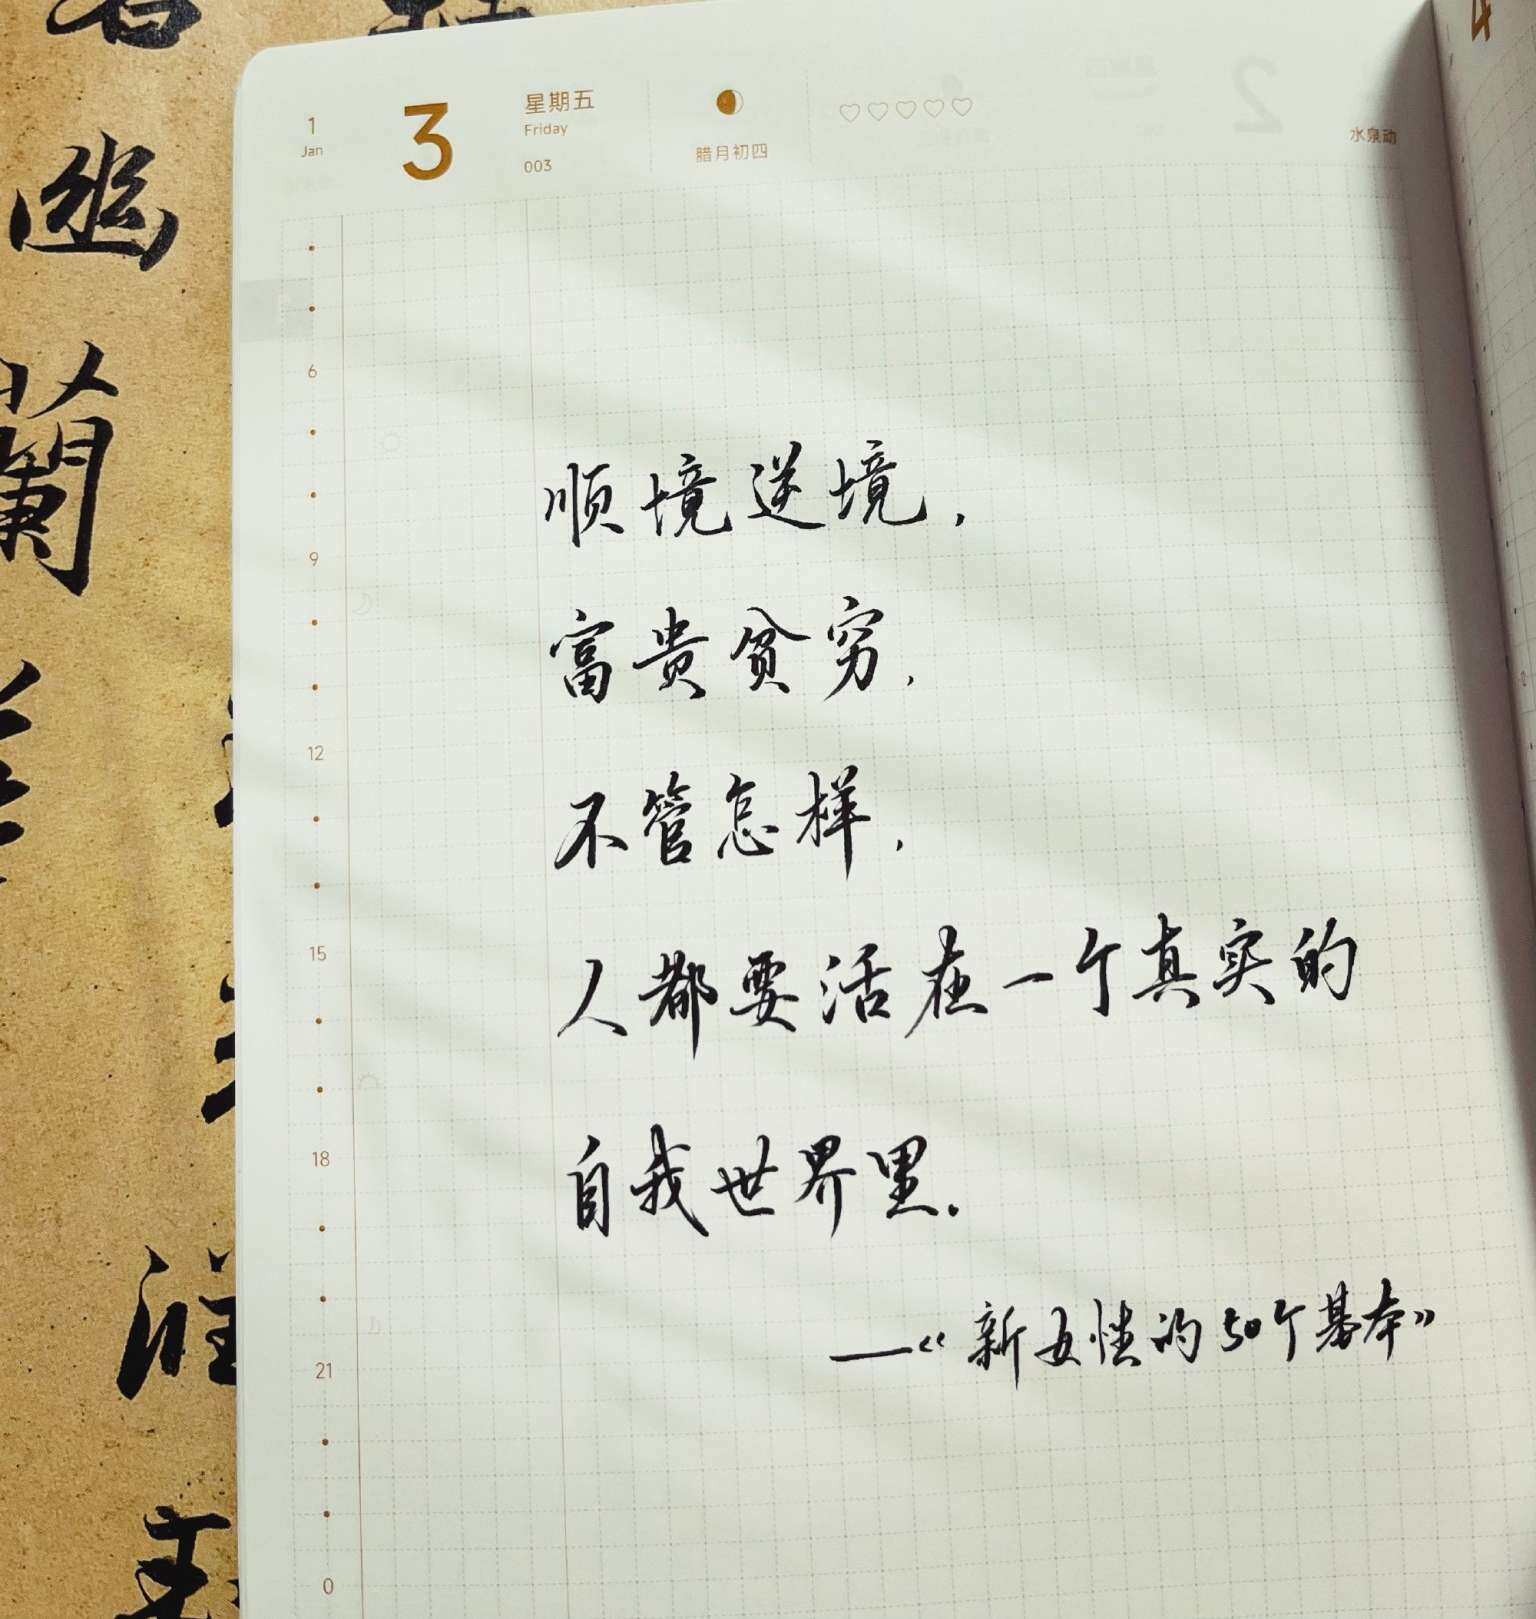 1
Jan
3
星期五
Friday
003
腊月初四
水泉动
4
2
6
9
12
15
18
21
0
顺境逆境，
富贵贫穷，
不管怎样，
人都要活在一个真实的
自我世界里。
——《新女性的50个基本》
幽
蘭